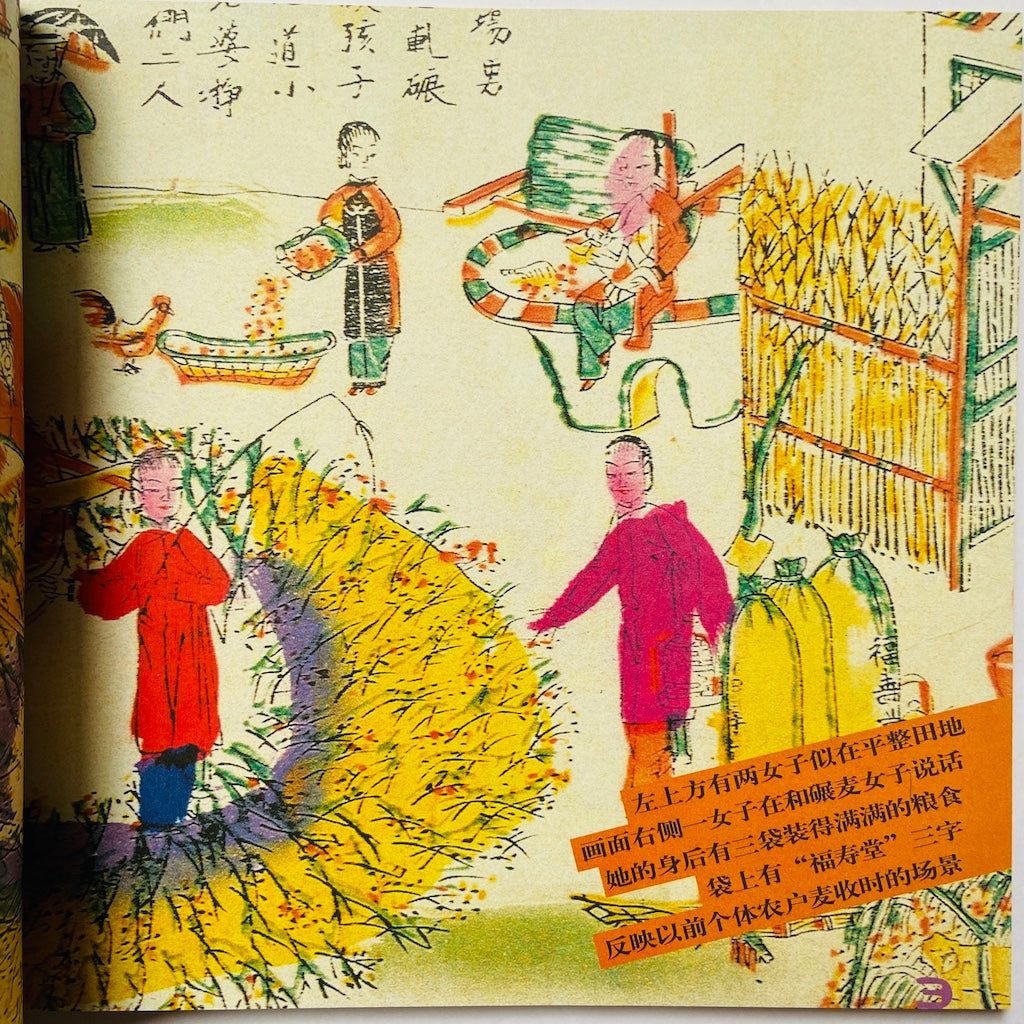 場
軋碾
孩子
道小
婆
們二人
福寿
左上方有两女子似在平整田地
画面右侧一女子在和碾麦女子说话
她的身后有三袋装得满满的粮食
袋上有“福寿堂”三字
反映以前个体农户麦收时的场景